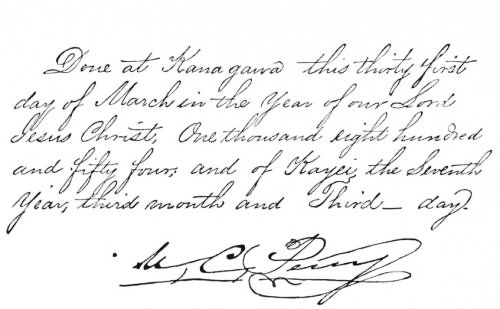 Done at Kanagawa this thirty first
day of March in the Year of our Lord
Jesus Christ, One thousand eight hundred
and fifty four; and of Kayei, the Seventh
Year, third month and Third_ day.
M. C. Perry